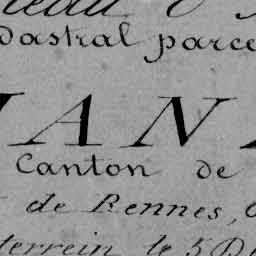 dastral parce
JAN
Canton de
de Rennes,
terrein le 5 D